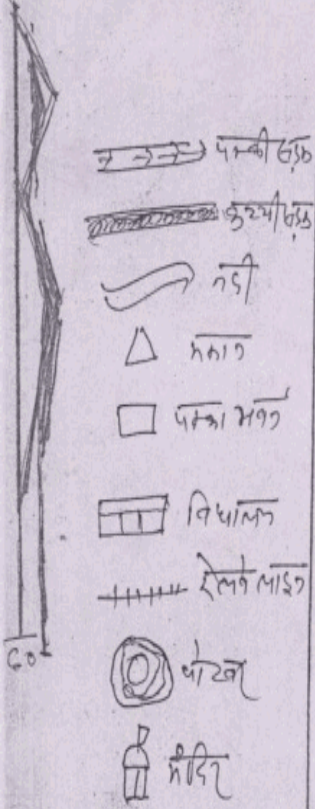 पक्की सड़क
कच्ची सड़क
नदी
मकान
पक्का भवन
विधालय
रेलवे लाइन
पोखर
60
मंदिर